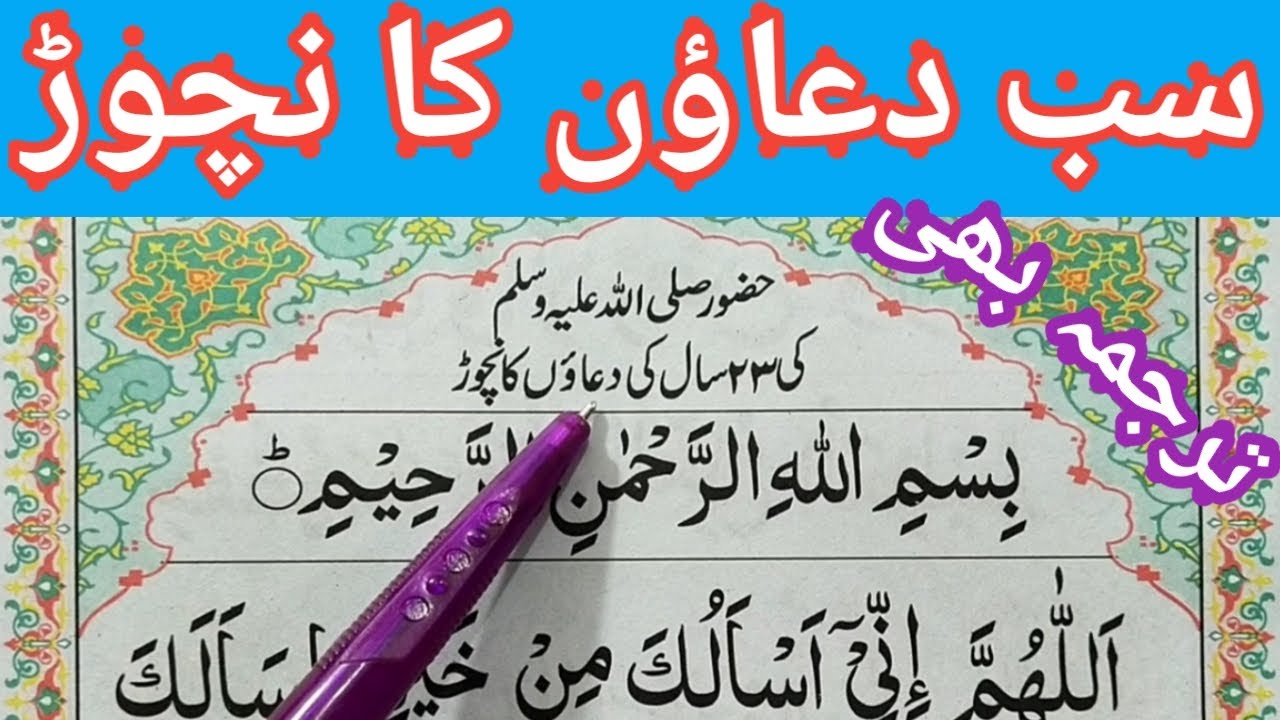 سب دعاؤن کا نچوڑ
ترجمہ بھی
حضور صلی اللہ علیہ وسلم
کی ۲۳ سال کی دعاؤں کا نچوڑ
بِسْمِ اللهِ الرَّحْمٰنِ الرَّحِيْمِ
اَللّٰهُمَّ إِنِّيْٓ اَسْاَلُكَ مِنْ سَاَلَكَ